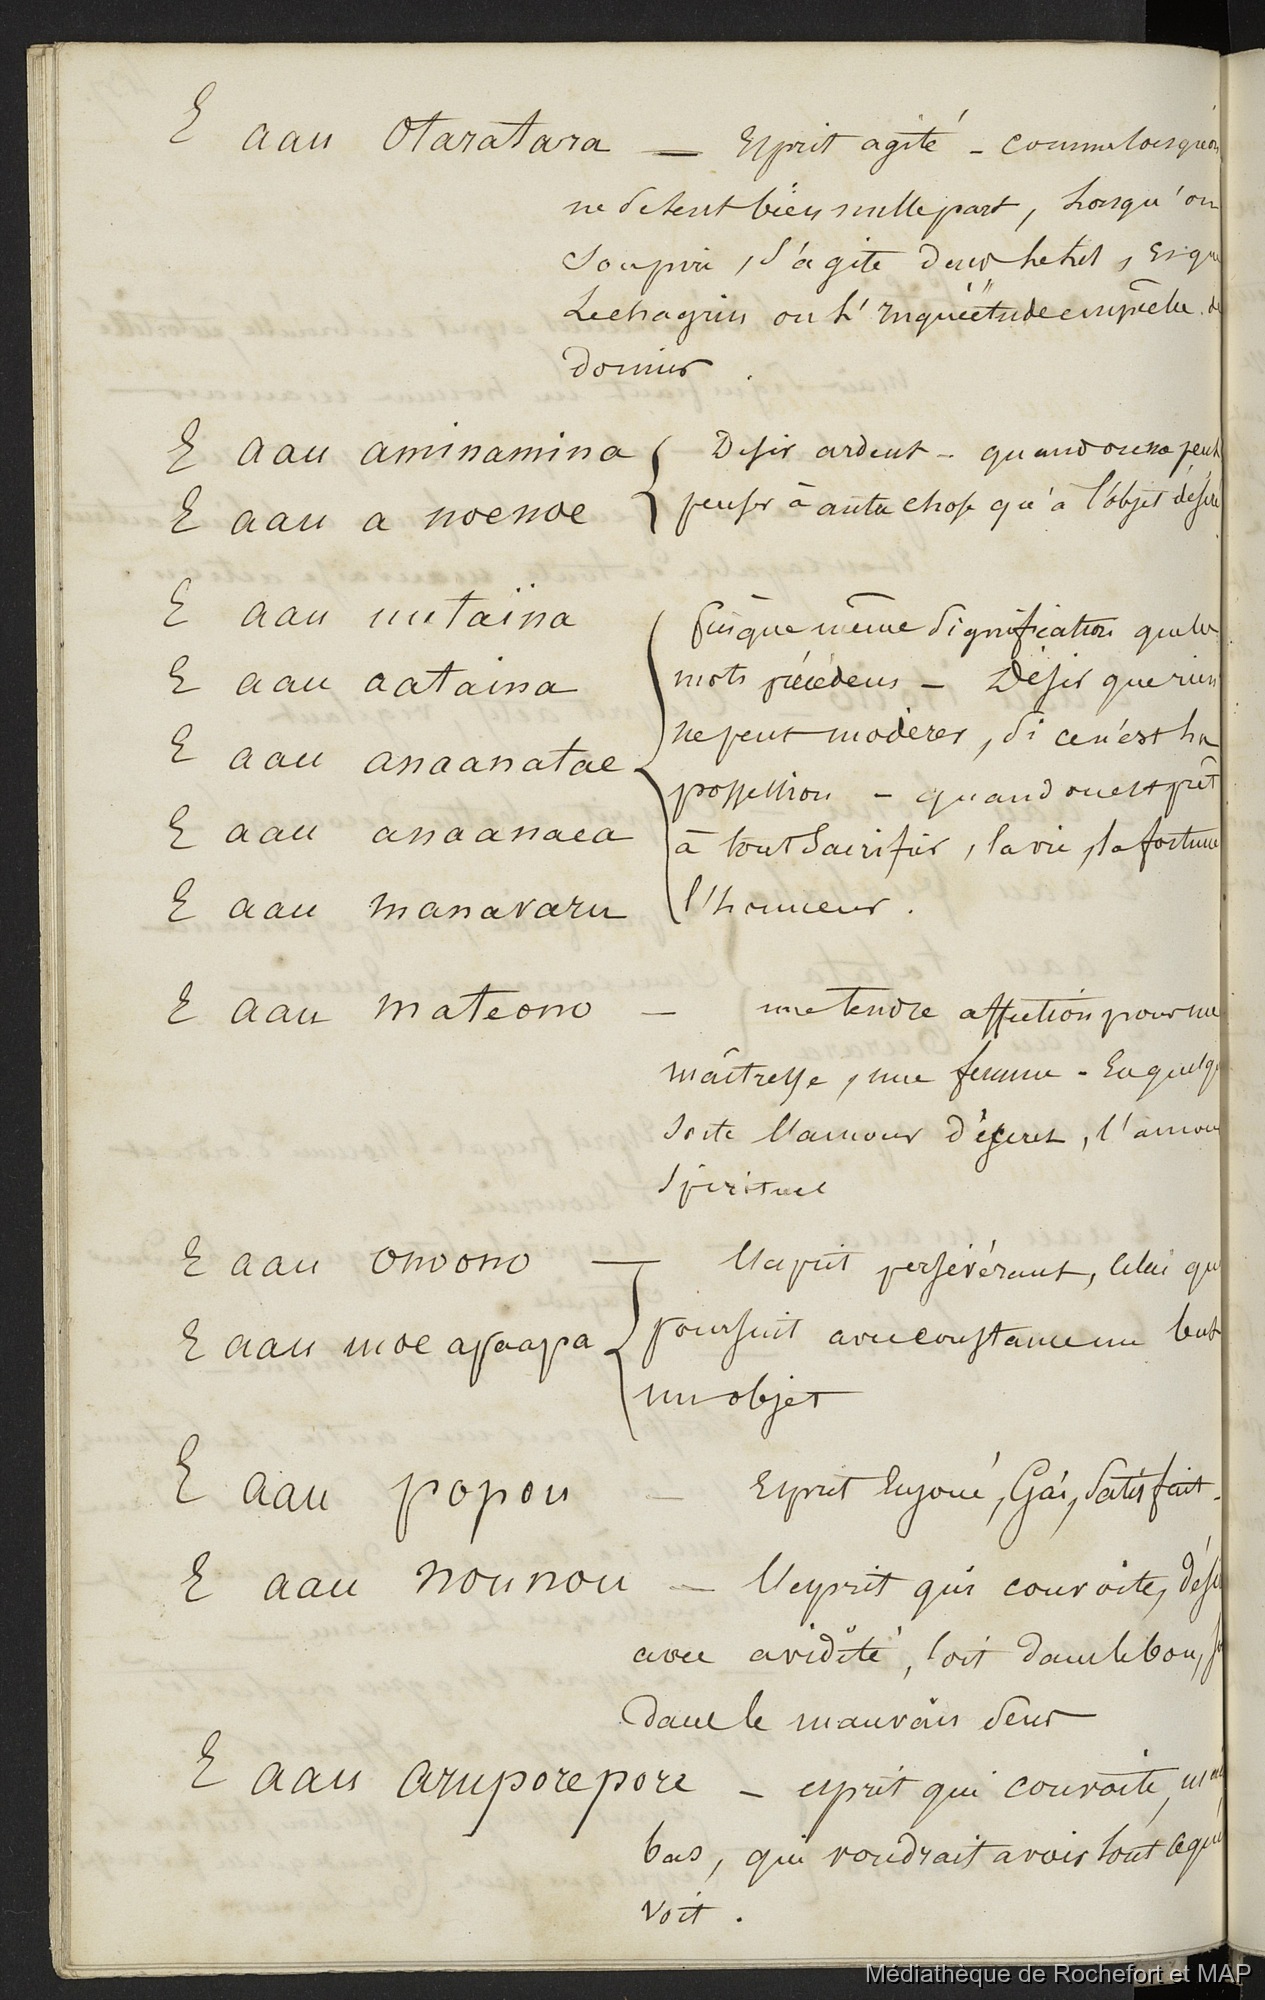 E aau Otaratara — Esprit agité - comme lorsqu'on
ne se sent bien nulle part, lorsqu'on
soupire, s'agite dans le lit, et que
le chagrin ou l'inquiétude empêche de
dormir.
E aau aminamina { Desir ardent - quand on ne peut
E aau a noenoe penser à autre chose qu'à l'objet désiré
E aau uutaïna
E aau aataina
E aau anaanatae
E aau anaanaea
E aau manavaru
même signification que les
mots précédens - Désir que rien
ne peut modérer, si ce n'est la
possession - quand on est prêt
à tout sacrifier, la vie, la fortune
l'honneur.
E aau mateono - une tendre affection pour une
maîtresse, une femme - En quelque
sorte l'amour discret, l'amour
spirituel
E aau onoono — l'esprit persévérant, celui qui
E aau moe apaapa { poursuit avec constance un but
un objet
E aau popou - Esprit Enjoué, Gai, satisfait -
E aau nounou - l'esprit qui convoite, désire
avec avidité, soit dans le bon, soit
dans le mauvais sens
E aau aruporepore - esprit qui convoite,
bas, qui voudrait avoir tout ce qu'il
voit.
Médiathèque de Rochefort et MAP